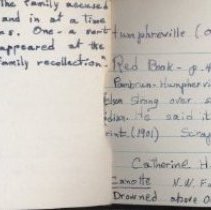 the family accused
and in at a time
as. One - a
appeared at the
family recollection."
umphreville (
Red Book - p. 4
Pambrun - Humphrevil
strong over s
He said it
int. (1901) Scra
Catherine H
Canotte N. W. F
Drowned above